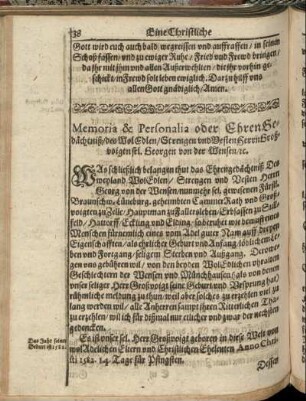 38 Eine Christliche
Gott wird euch auch bald wegreissen und auffraffen / in seinem
Schoß fassen / und zu ewiger Ruhe / Fried und Frewd bringen /
da ihr mit ihm und allen Außerwehlten / die ihr vorhin ge-
schickt / in Frewd solt leben ewiglich. Darzu hülff uns
allen Gott gnädiglich / Amen.
Memoria & Personalia oder Ehren Ge-
dächtniß / des Wol Edlen / Strengen und Vesten Herrn Groß-
voigten sel. Georgen von der Wensen / ꝛc.
WAs schließlich belangen thut das Ehrngedächtniß Des
weyland WolEdlen / Strengen und Vesten Herrn
Georg von der Wensen / nunmehr sel. gewesenen Fürstl.
Braunschw: Lüneburg. geheimbten Cammer Rath und Großv
voigten zu Zelle / Hauptman zu
feld / Hattorff / Eckling und Elding / so
Menschen fürnemlich eines vom Adel guter Nam auff dreyen
Eigenschafften / als ehrlicher Geburt und Anfang / löblichen Le-
ben und Fortgang / seligem Sterben und Außgang.
gen uns gebühren wil / von den beyden Wol Edlichen
Geschlechtern der Wensen und Münchhausen / als von denen
unser seliger Herr Großvoigt seine Geburt und Vrsprung hat /
rühmliche meldung zu thun / weil aber solches zu erzehlen viel zu
lang werden wil / alle Anherren sampt ihren Ritterlichen Tha-
ten zu erzehlen / wil ich für dißmal nur etlicher und zwar der nechsten
gedencken.
Das Jahr seiner
Geburt ist 1582.
Es ist unser sel. Herr Großvoigt geboren in diese Welt von
wol Adelichen Eltern und Christlichen Eheleuten Anno Chri-
sti 1582. 14. Tage für Pfingsten.
Dessen